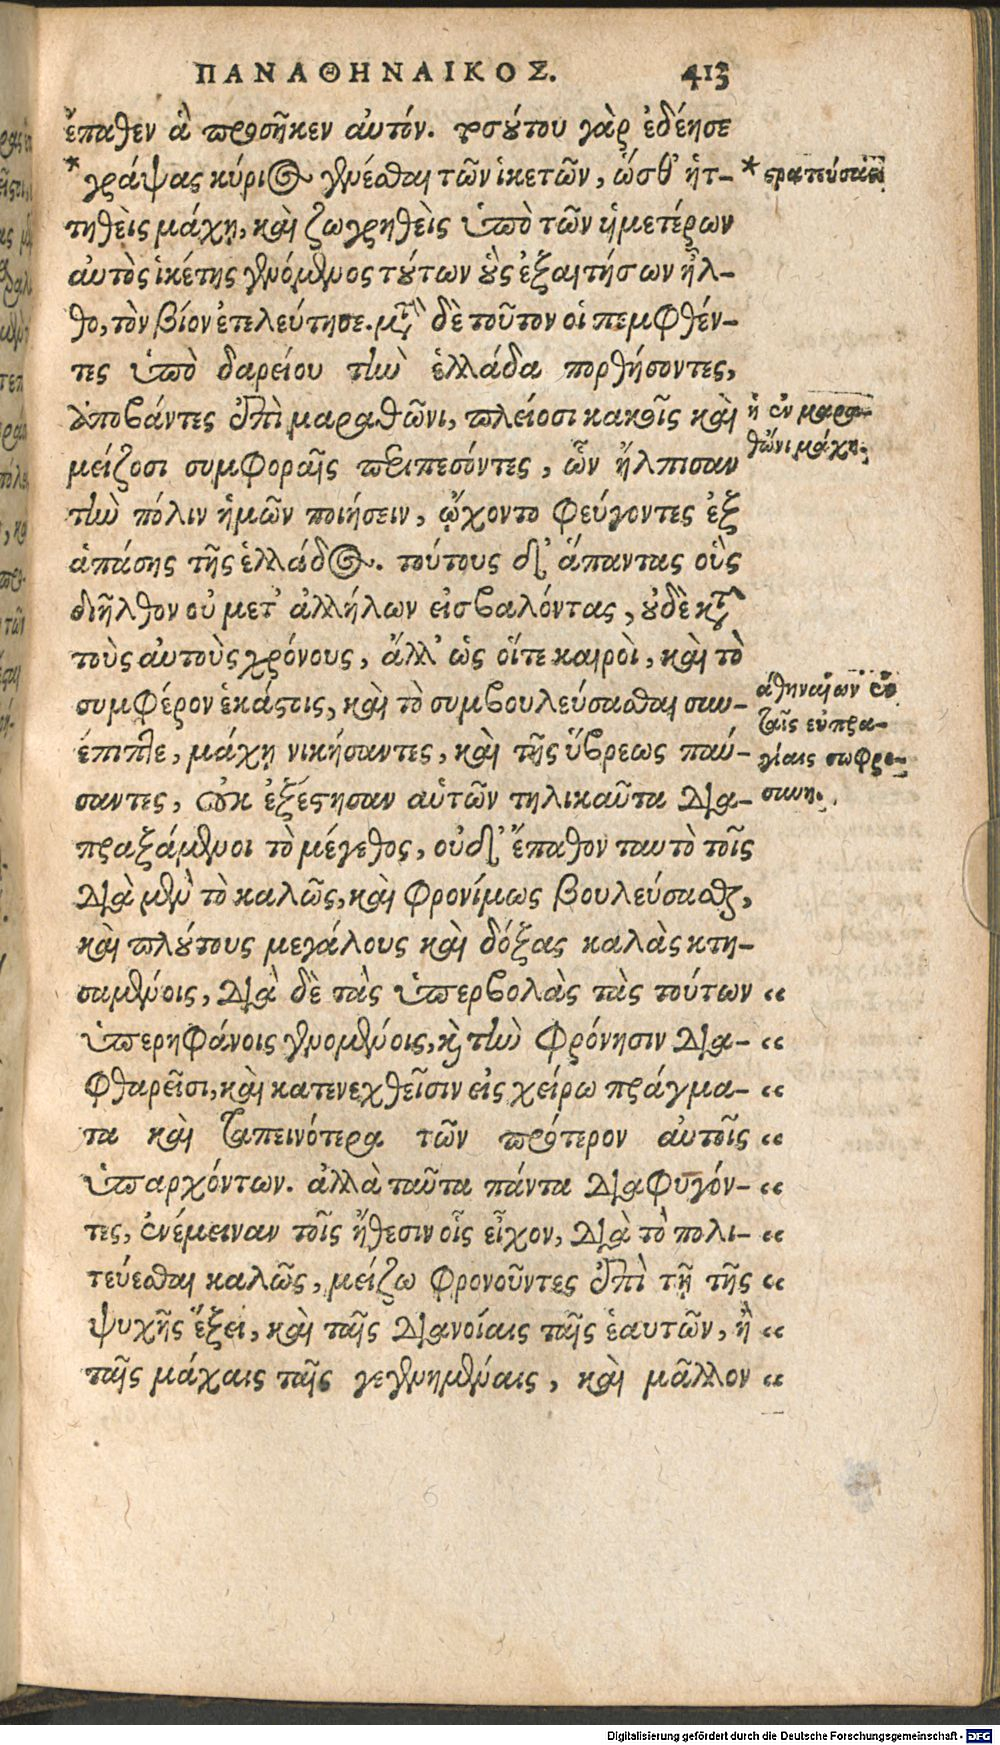 ΠΑΝΑΘΗΝΑΙΚΟΣ. 413
ἔπαθεν ἃ προσῆκεν αὐτόν. τοσούτου γὰρ ἐδέησε
* γράψας κύριος γενέσθαι τῶν ἱκετῶν, ὥσθ' ἡτ-
* στρατεύσας
τηθεὶς μάχῃ, καὶ ζωγρηθεὶς ὑπὸ τῶν ἡμετέρων
αὐτὸς ἱκέτης γενόμενος τούτων οὓς ἐξαιτήσων ἦλ-
θε, τὸν βίον ἐτελεύτησε. μετὰ δὲ τοῦτον οἱ πεμφθέν-
τες ὑπὸ δαρείου τὴν ἑλλάδα πορθήσοντες,
ἀποβάντες ἐπὶ μαραθῶνι, πλείοσι κακοῖς καὶ
ἡ ἐν μαρα-
μείζοσι συμφοραῖς περιπεσόντες, ὧν ἤλπισαν
θῶνι μάχη.
τὴν πόλιν ἡμῶν ποιήσειν, ᾤχοντο φεύγοντες ἐξ
ἁπάσης τῆς ἑλλάδος. τούτους δ' ἅπαντας οὓς
διῆλθον οὐ μετ' ἀλλήλων εἰσβαλόντας, οὐδὲ κατὰ
τοὺς αὐτοὺς χρόνους, ἀλλ' ὡς οἵ τε καιροὶ, καὶ τὸ
συμφέρον ἑκάστοις, καὶ τὸ συμβουλεύσασθαι συν-
ἀθηναίων ἐν
ταῖς εὐπρα-
έπιπτε, μάχῃ νικήσαντες, καὶ τῆς ὕβρεως παύ-
γίαις σωφρο-
σαντες, οὐκ ἐξέστησαν αὑτῶν τηλικαῦτα δια-
σύνη.
πραξάμενοι τὸ μέγεθος, οὐδ' ἔπαθον ταυτὸ τοῖς
διὰ μὲν τὸ καλῶς, καὶ φρονίμως βουλεύσασθαι,
καὶ πλούτους μεγάλους καὶ δόξας καλὰς κτη-
σαμένοις, διὰ δὲ τὰς ὑπερβολὰς τὰς τούτων “
ὑπερηφάνοις γενομένοις, καὶ τὴν φρόνησιν δια- “
φθαρεῖσι, καὶ κατενεχθεῖσιν εἰς χείρω πράγμα- “
τα καὶ ταπεινότερα τῶν πρότερον αὐτοῖς “
ὑπαρχόντων. ἀλλὰ ταῦτα πάντα διαφυγόν- “
τες, ἐνέμειναν τοῖς ἤθεσιν οἷς εἶχον, διὰ τὸ πολι- “
τεύεσθαι καλῶς, μείζω φρονοῦντες ἐπὶ τῇ τῆς “
ψυχῆς ἕξει, καὶ ταῖς διανοίαις ταῖς ἑαυτῶν, ἢ “
ταῖς μάχαις ταῖς γεγενημέναις, καὶ μᾶλλον “
Digitalisierung gefördert durch die Deutsche Forschungsgemeinschaft - DFG